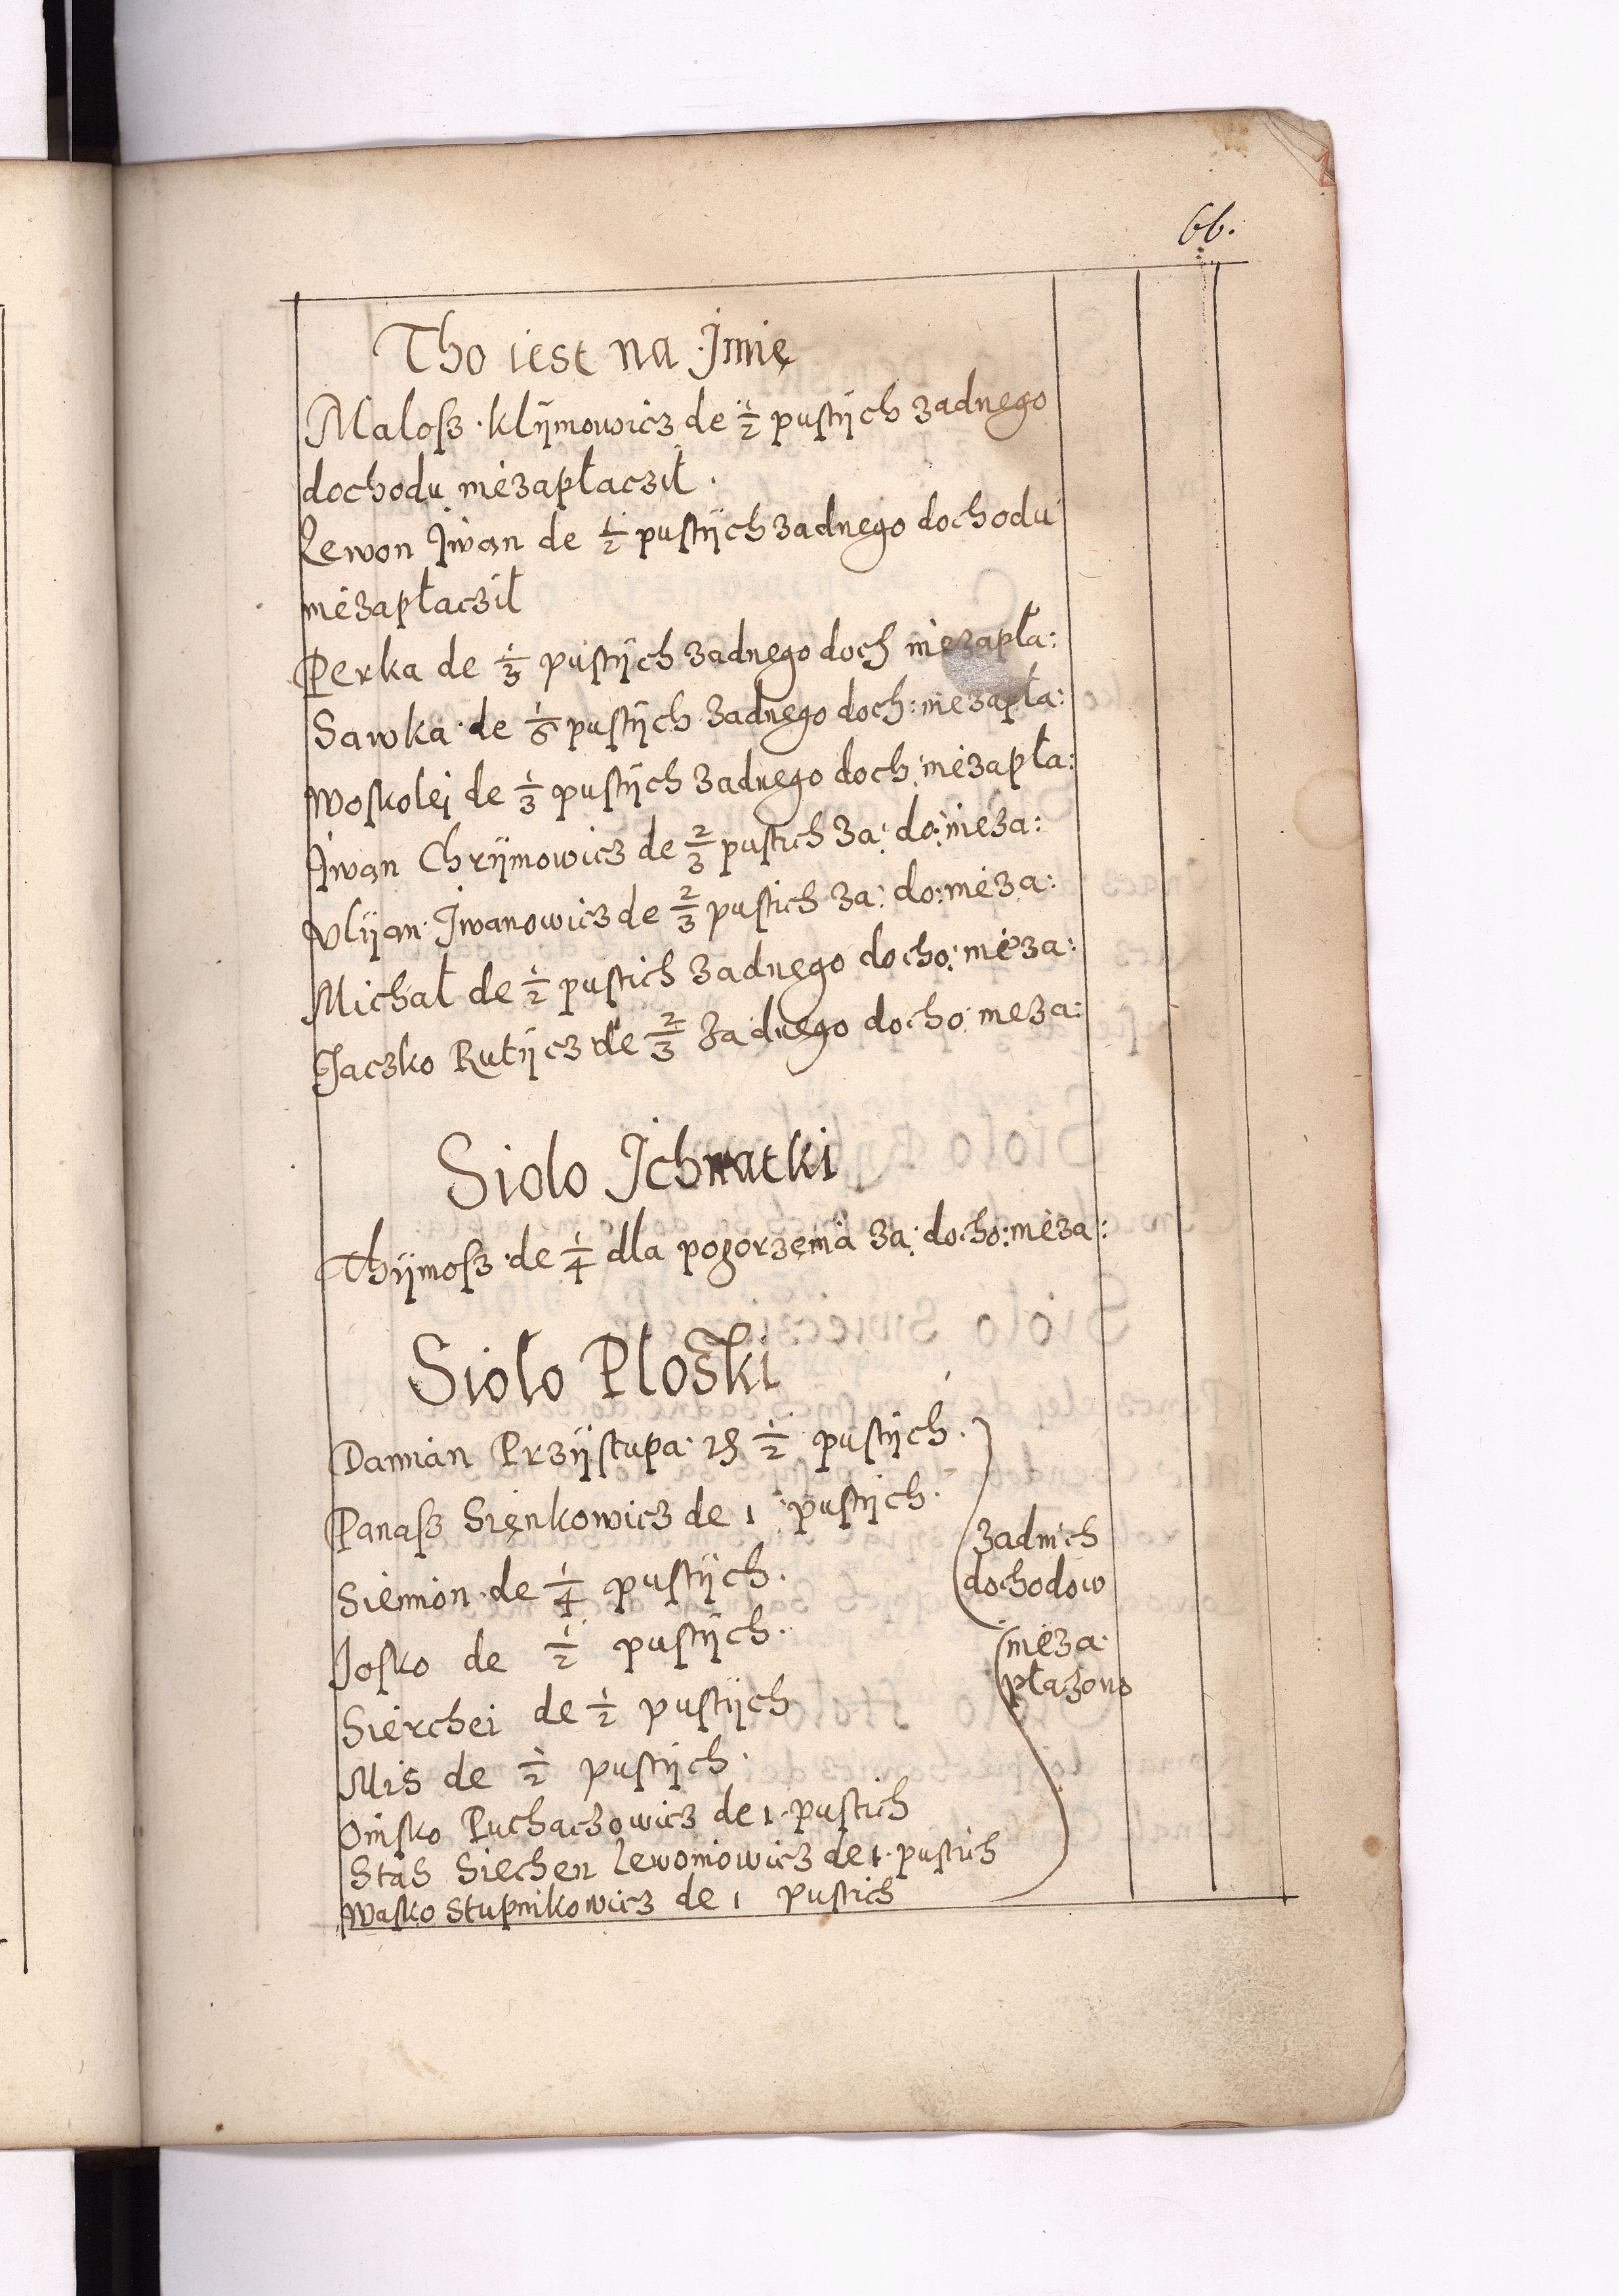 66.
Tho iest na Jmię
Malosz Klijmowicz de 1/2 pustijch zadnego
dochodu niezapłacził.
Lewon Jwan de 1/2 pustijch zadnego dochodu
niezapłacził
Perka de 1/3 pustijch zadnego doch niezapła:
Sawka de 1/6 pustijch zadnego doch: niezapła:
Woskolei de 1/3 pustijch zadnego doch: niezapła:
Jwan Chrijmowicz de 2/3 pustich za: do: nieza:
Vlijan Jwanowicz de 2/3 pustich za: do: nieza:
Michał de 1/2 pustich zadnego docho: nieza:
Jaczko Rutijcz de 2/3 zadnego docho: nieza:
Siolo Jchnatki
Thijmosz de 1/4 dla pogorzenia za: docho: nieza:
Sioło Ploski
Damian Przijstupa 1/2 pustijch.
Panasz Sienkowicz de 1 pustijch.
Siemion de 1/4 pustijch.
Josko de 1/2 pustijch.
Sierchei de 1/2 pustijch
Mis de 1/2 pustijch.
Onisko Puchaczowicz de 1 pustich
Stas Siechen Lewoniowicz de 1 pustich
Wasko Stupnikowicz de 1 pustich
zadnich
dochodow
nieza
płazono